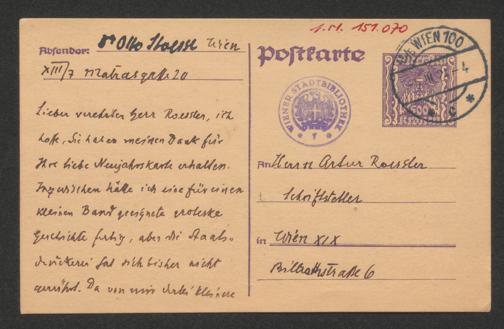 I.N. 151.070
Absender: Dr Otto Stoessl Wien
XIII/7 Matrasgasse 20
Postkarte
WIEN 100
WIENER STADTBIBLIOTHEK
Lieber verehrter Herr Roessler, ich
hoffe, Sie haben meinen Dank für
Ihre liebe Neujahrskarte erhalten.
Inzwischen hätte ich eine für einen
kleinen Band geeignete groteske
Geschichte fertig, aber die Staats-
druckerei hat sich bisher nicht
gerührt. Da von mir drei kleinere
An Herrn Artur Roessler
Schriftsteller
in Wien XIX
Billrothstraße 6